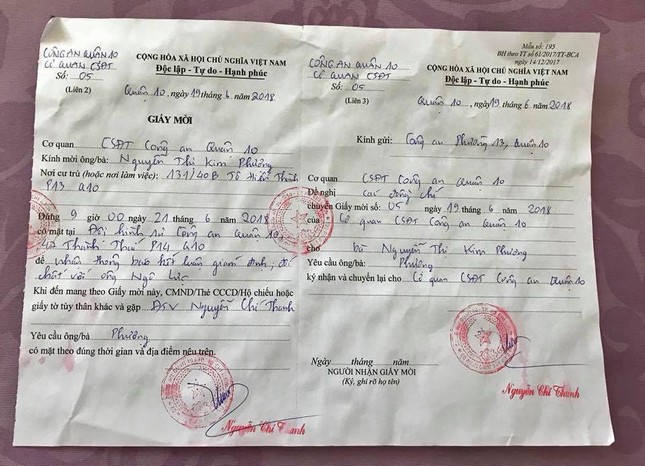 CÔNG AN QUẬN 10
CƠ QUAN CSĐT
Số: 05
(Liên 2)
CỘNG HÒA XÃ HỘI CHỦ NGHĨA VIỆT NAM
Độc lập - Tự do - Hạnh phúc
Quận 10, ngày 19 tháng 6 năm 2018
GIẤY MỜI
Cơ quan CSĐT Công an Quận 10
Kính mời ông/bà: Nguyễn Thị Kim Phương
Nơi cư trú (hoặc nơi làm việc): 131/40B Tô Hiến Thành
P13 Q10
Đúng 9 giờ 00 ngày 21 tháng 6 năm 2018
có mặt tại Đội hình sự Công an Quận 10,
47 Thành Thái P14 Q10
để nhận thông báo kết luận giám định; đối
chất với ông Ngô
Khi đến mang theo Giấy mời này, CMND/Thẻ CCCD/Hộ chiếu hoặc
giấy tờ tùy thân khác và gặp ĐTV Nguyễn Chí Thanh
Yêu cầu ông/bà Phương
có mặt theo đúng thời gian và địa điểm nêu trên.
Nguyễn Chí Thanh
CÔNG AN QUẬN 10
CƠ QUAN CSĐT
Số: 05
(Liên 3)
Mẫu số: 195
BH theo TT số 61/2017/TT-BCA
ngày 14/12/2017
CỘNG HÒA XÃ HỘI CHỦ NGHĨA VIỆT NAM
Độc lập - Tự do - Hạnh phúc
Quận 10, ngày 19 tháng 6 năm 2018
Kính gửi: Công an Phường 13, Quận 10
Cơ quan CSĐT Công an Quận 10
Đề nghị các đồng chí
chuyển Giấy mời số: 05 ngày 19 tháng 6 năm 2018
của Cơ quan CSĐT Công an Quận 10
cho bà Nguyễn Thị Kim Phương
Yêu cầu ông/bà Phương
ký nhận và chuyển lại cho Cơ quan CSĐT Công an Quận 10
Ngày tháng năm
NGƯỜI NHẬN GIẤY MỜI
(Ký, ghi rõ họ tên)
Nguyễn Chí Thanh